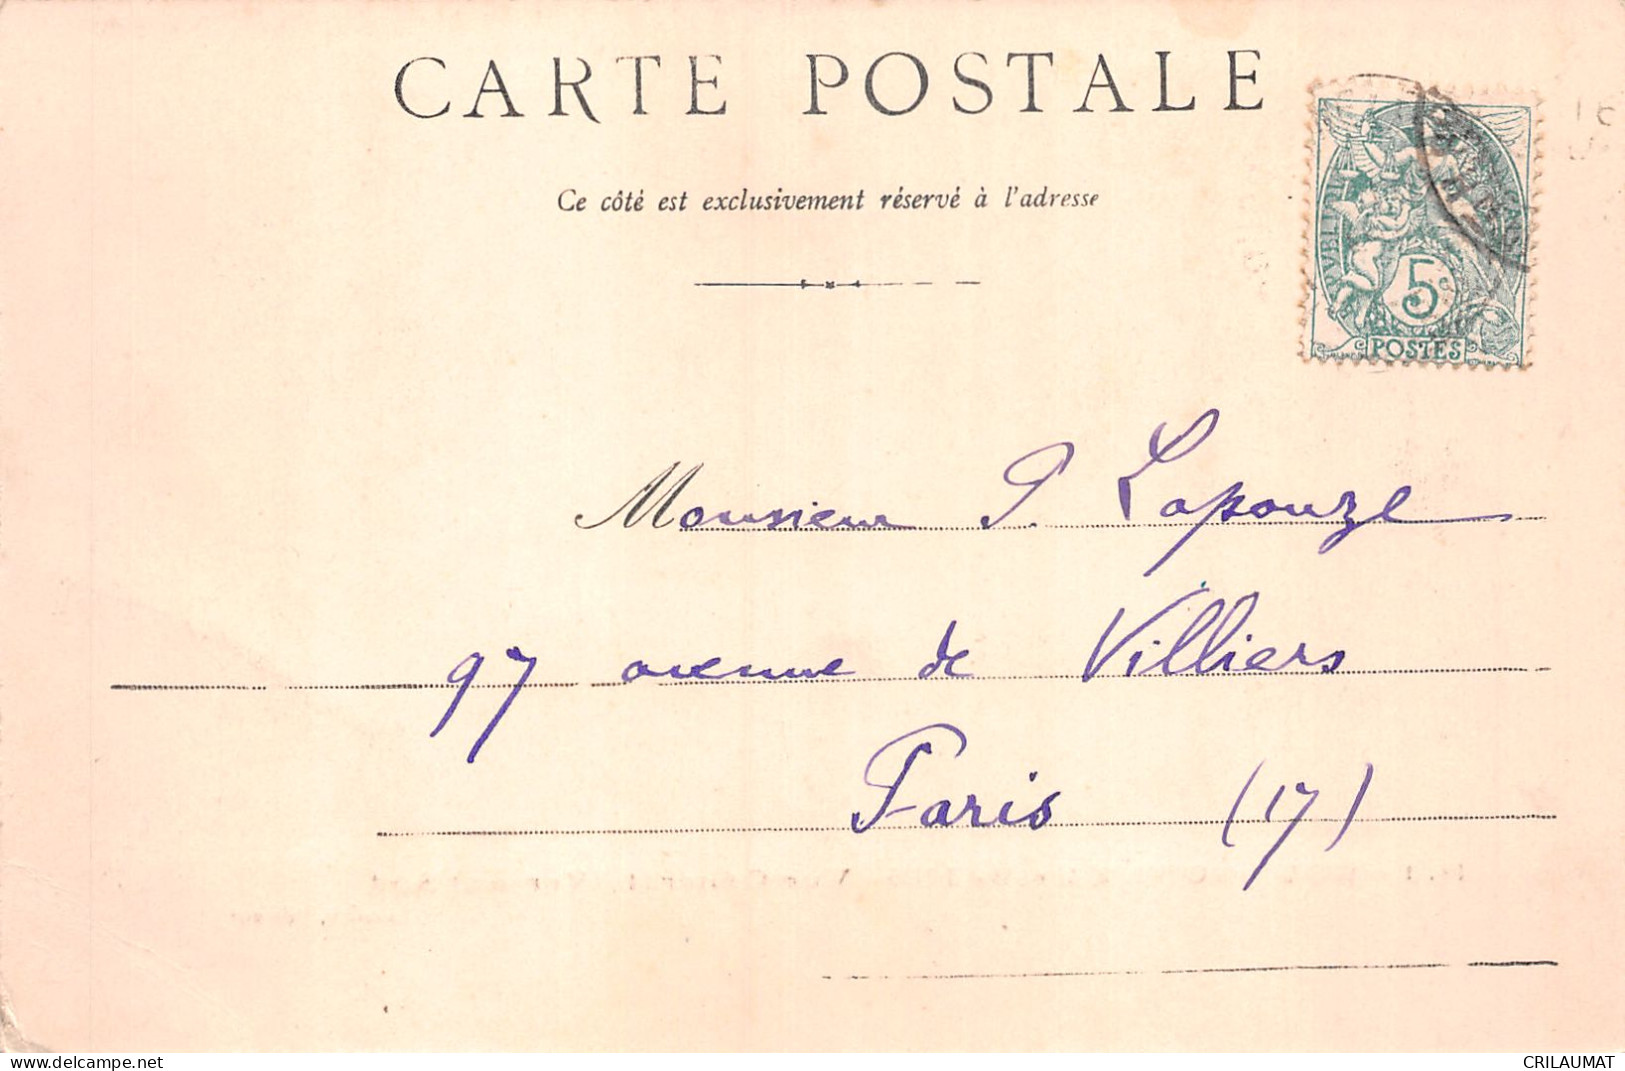 CARTE POSTALE
Ce côté est exclusivement réservé à l'adresse
5c
POSTES
Monsieur P. Lapouze
97 avenue de Villiers
Paris (17)
www.delcampe.net
CRILAUMAT